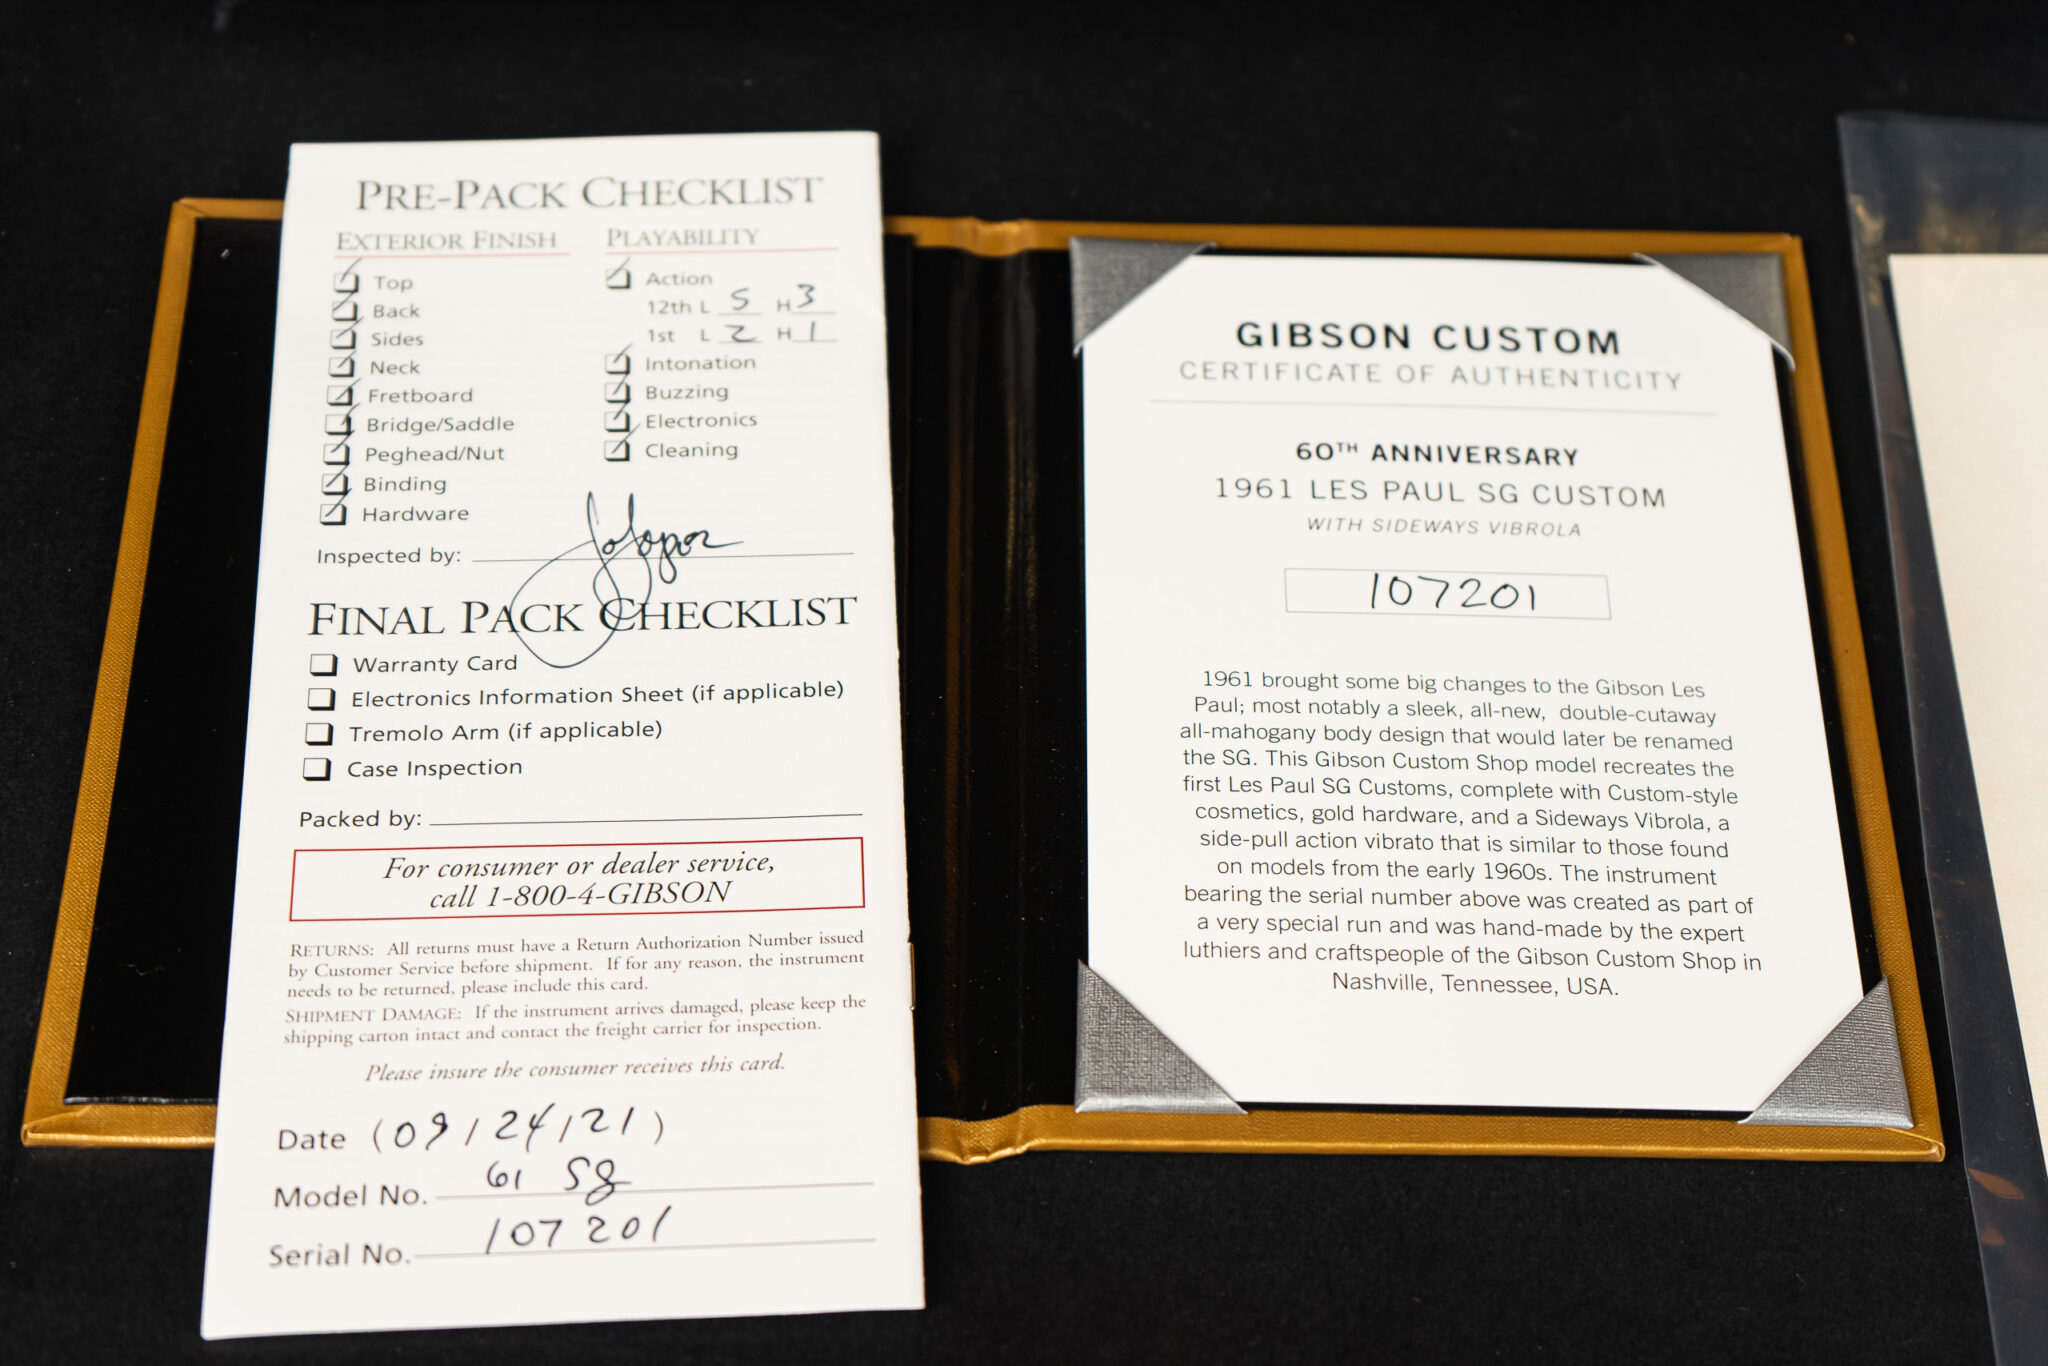 PRE-PACK CHECKLIST
EXTERIOR FINISH
Top
Back
Sides
Neck
Fretboard
Bridge/Saddle
Peghead/Nut
Binding
Hardware
PLAYABILITY
Action
12th L 5 H 3
1st L 2 H 1
Intonation
Buzzing
Electronics
Cleaning
Inspected by:
FINAL PACK CHECKLIST
Warranty Card
Electronics Information Sheet (if applicable)
Tremolo Arm (if applicable)
Case Inspection
Packed by:
For consumer or dealer service,
call 1-800-4-GIBSON
RETURNS: All returns must have a Return Authorization Number issued
by Customer Service before shipment. If for any reason, the instrument
needs to be returned, please include this card.
SHIPMENT DAMAGE: If the instrument arrives damaged, please keep the
shipping carton intact and contact the freight carrier for inspection.
Please insure the consumer receives this card.
Date (09/24/21)
Model No. 61 Sg
Serial No. 107201
GIBSON CUSTOM
CERTIFICATE OF AUTHENTICITY
60TH ANNIVERSARY
1961 LES PAUL SG CUSTOM
WITH SIDEWAYS VIBROLA
107201
1961 brought some big changes to the Gibson Les
Paul; most notably a sleek, all-new, double-cutaway
all-mahogany body design that would later be renamed
the SG. This Gibson Custom Shop model recreates the
first Les Paul SG Customs, complete with Custom-style
cosmetics, gold hardware, and a Sideways Vibrola, a
side-pull action vibrato that is similar to those found
on models from the early 1960s. The instrument
bearing the serial number above was created as part of
a very special run and was hand-made by the expert
luthiers and craftspeople of the Gibson Custom Shop in
Nashville, Tennessee, USA.